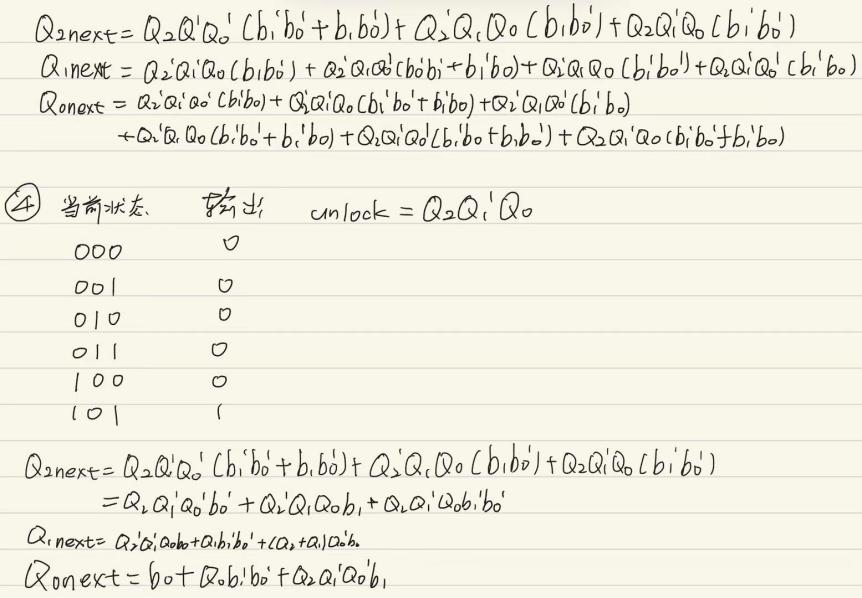 Q2next = Q2Q1'Q0'(b1'b0'+b1b0')+Q2'Q1Q0(b1b0')+Q2Q1'Q0(b1'b0')
Q1next = Q2'Q1'Q0(b1b0')+Q2'Q1Q0'(b0'b1'+b1'b0)+Q2'Q1Q0(b1'b0')+Q2Q1'Q0'(b1'b0)
Q0next = Q2'Q1'Q0'(b1'b0)+Q2'Q1'Q0(b1'b0'+b1'b0)+Q2'Q1Q0'(b1'b0)
+Q2'Q1Q0(b1'b0'+b1'b0)+Q2Q1'Q0'(b1'b0+b1b0')+Q2Q1'Q0(b1'b0'+b1'b0)
④ 当前状态 输出 unlock = Q2Q1'Q0
000 0
001 0
010 0
011 0
100 0
101 1
Q2next = Q2Q1'Q0'(b1'b0'+b1b0')+Q2'Q1Q0(b1b0')+Q2Q1'Q0(b1'b0')
= Q2Q1'Q0'b0'+Q2'Q1Q0b1+Q2Q1'Q0b1'b0'
Q1next = Q2'Q1'Q0b0+Q1b1'b0'+(Q2+Q1)Q0'b0
Q0next = b0+Q0b1'b0'+Q2Q1'Q0'b1